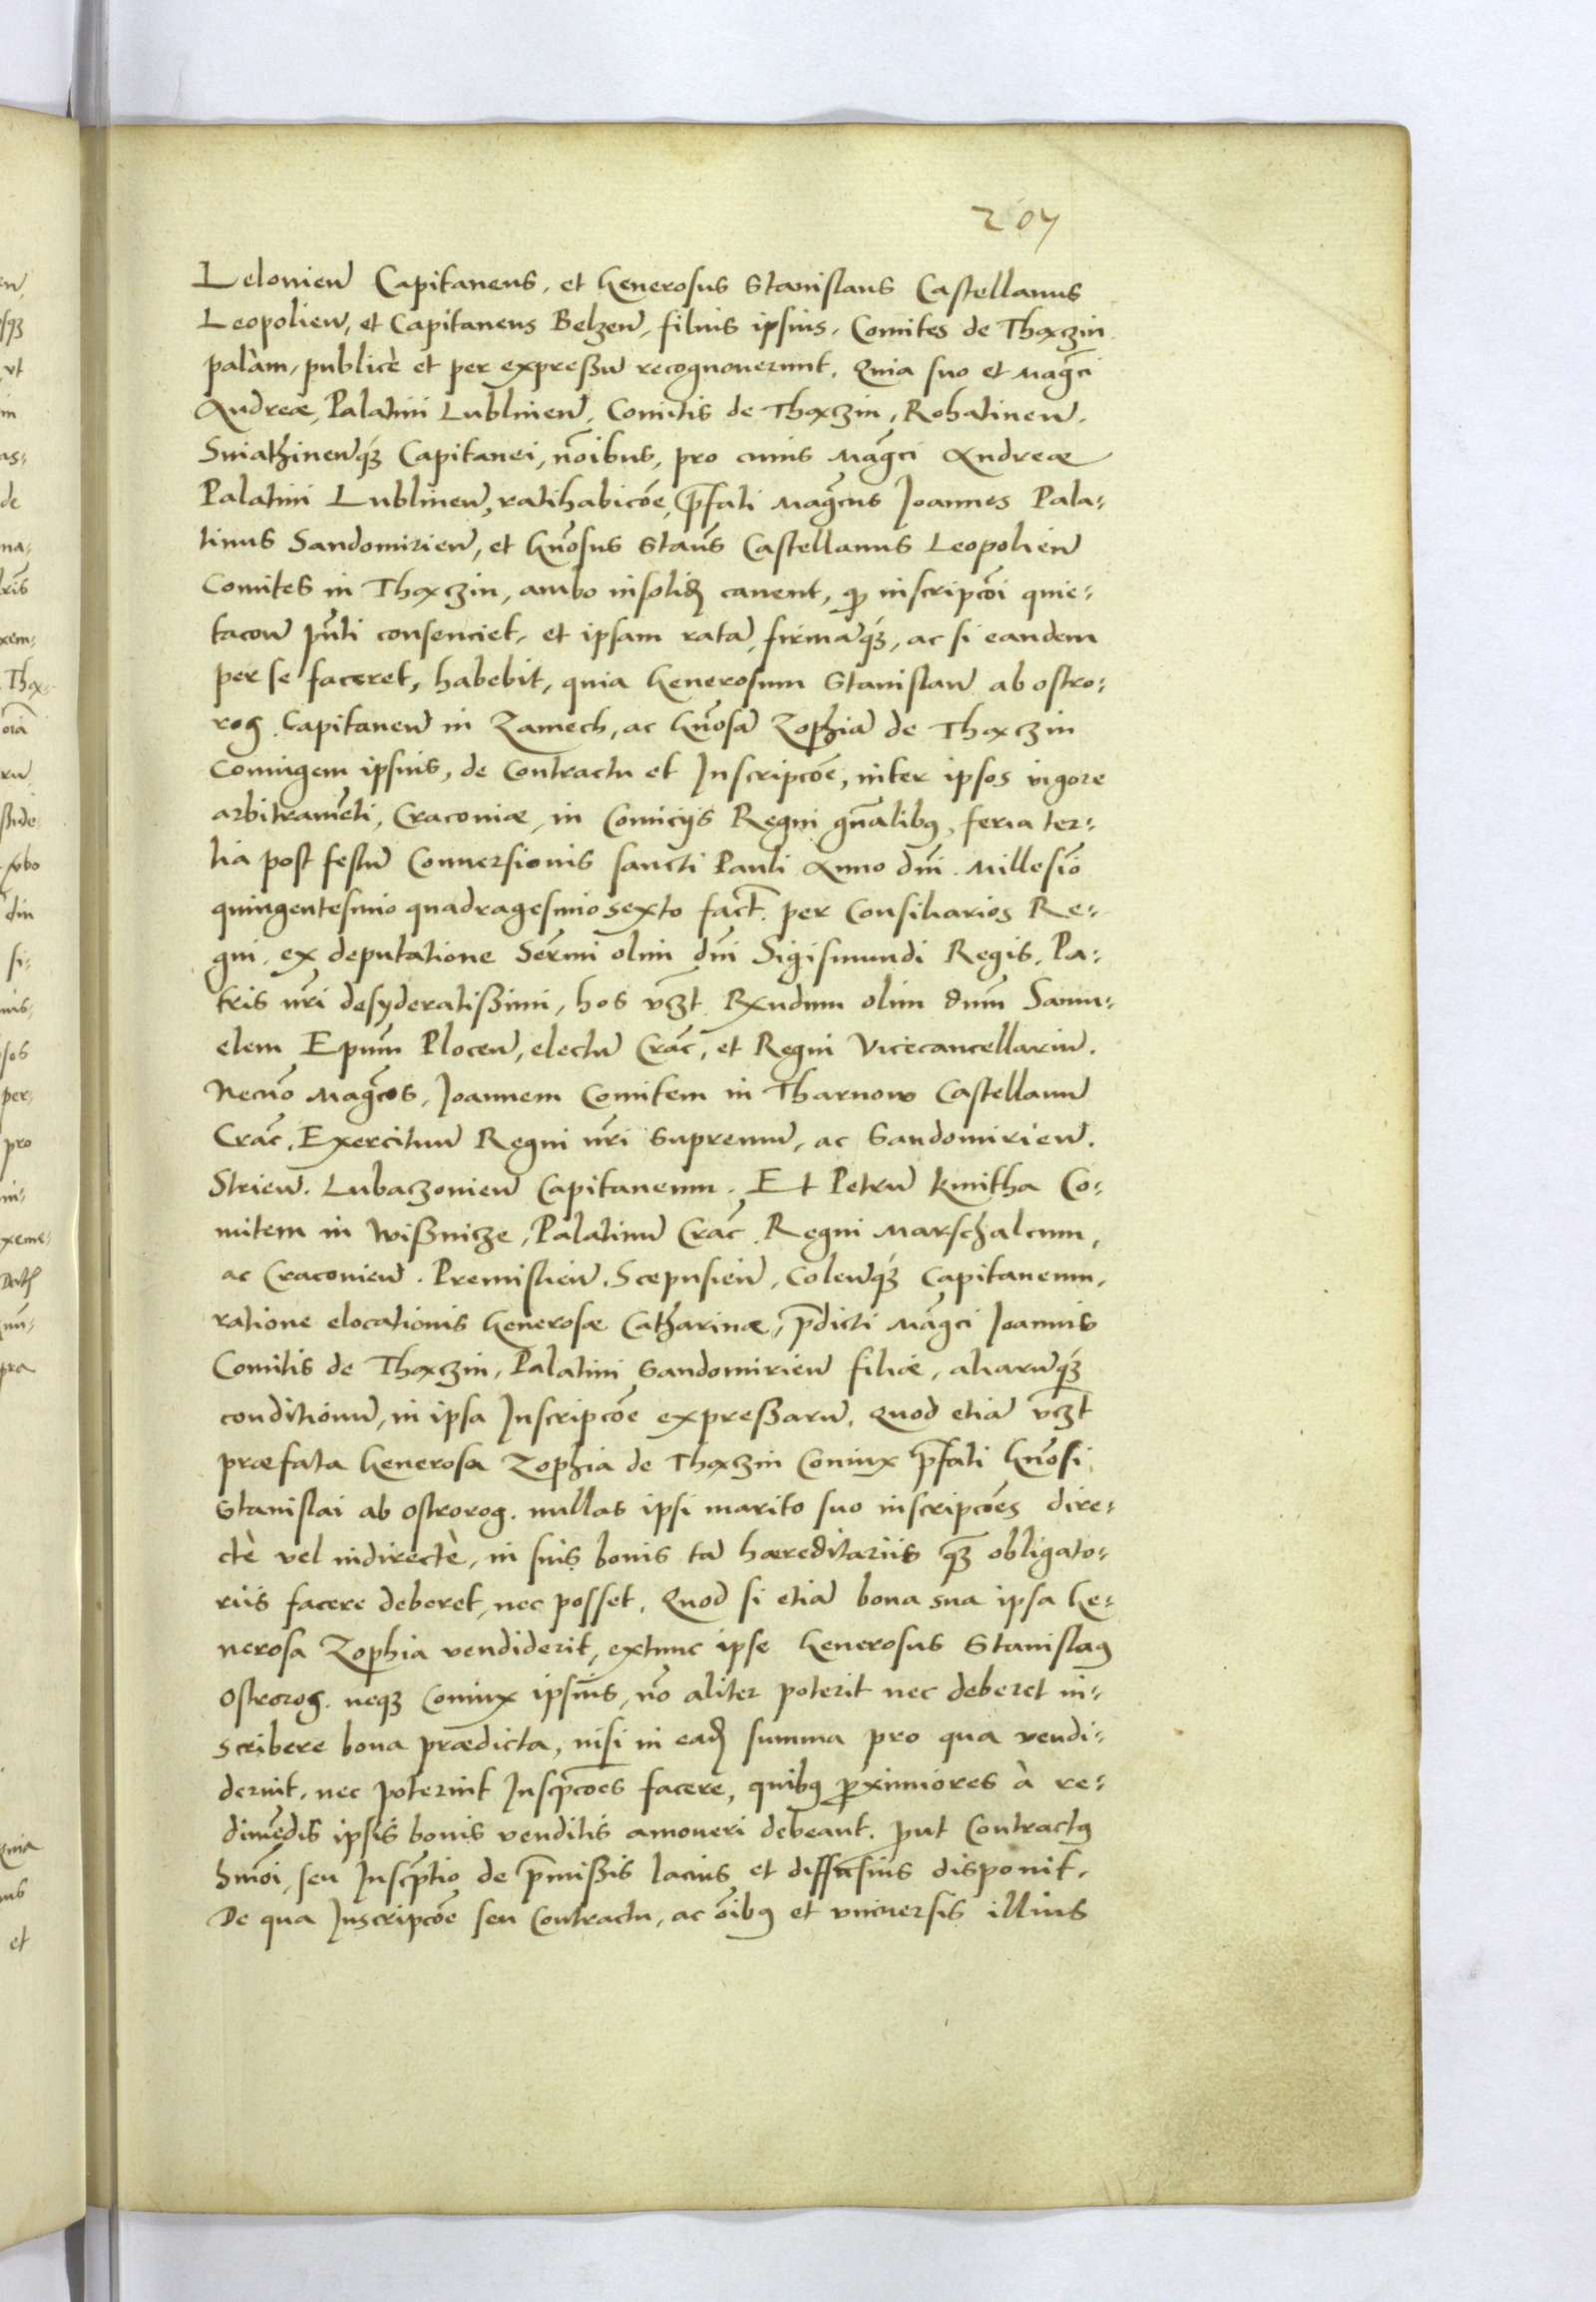 207
Leloviens̄ Capitaneus, et Generosus Stanislaus Castellanus
Leopolien̄, et Capitaneus Belzen̄, filius ipsius, Comites de Thaxczin
palàm, publicè et per expressū recognouerunt, Quia suo et Magc̄i
Andreæ, Palatini Lublinen̄, Comitis de Thaxczin, Rohatinen̄,
Sniathinen̄q3 Capitanei, nōibus, pro cuius Magc̄i Andreæ
Palatini Lublinen̄, ratihabicōe, p̄fati Magc̄us Joannes Pala-
tinus Sandomirien̄, et Gn̄osus Staus̄ Castellanus Leopolien̄
Comites in Thaxczin, ambo insolid₃ cauent, q̄ inscripcōi quie-
tacou̅ pn̄ti consenciet, et ipsam ratā, firmāq3, ac si eandem
per se faceret, habebit, quia Generosum Stanislau̅ ab ostro-
rog. Capitaneu̅ in Zamech, ac Gn̄osā Zophiā de Thaxczin
Coniugem ipsius, de Contractu et Inscripcōe, inter ipsos vigore
arbitramēti, Cracouiæ, in Comicijs Regni gn̄alibꝯ, feria ter-
tia post festū Conuersionis sancti Pauli Anno dn̄i. Millesiō
quingentesimo quadragesimo sexto fact̄. per Consiliarios Re-
gni, ex deputatione Serm̄i olim dn̄i Sigismundi Regis, Pa-
tris nr̄i desyderatißimi, hos vc3t Rx̄ndum olim dnū Samu-
elem Epūm Plocen̄, electū Crac̄, et Regni Vicecancellariū.
Necnō Magc̄os, Joannem Comitem in Tharnow Castellanū
Crac̄, Exercituū Regni nr̄i Supremū, ac Sandomirien̄.
Strien̄. Lubaczouien̄ Capitaneum. Et Petrū Kmitha Co-
mitem in Wißnicze, Palatinū Crac̄. Regni Marschalcum,
ac Cracouien̄. Premislien̄. Scepusien̄, Colen̄q3 Capitaneum,
ratione elocationis Generosæ Catharinæ, p̄dicti Magc̄i Joannis
Comitis de Thaxczin, Palatini Sandomirien̄ filiæ, aliarūq3
conditionū, in ipsa Inscripcōe expreßarū, Quod etiā vc3t
præfata Generosa Zophia de Thaxczin Coniux p̄fati Gn̄osi
Stanislai ab Ostrorog. nullas ipsi marito suo inscripcōes dire-
ctè vel indirectè, in suis bonis tā hæreditariis q̄3 obligato-
riis facere deberet, nec posset, Quod si etiā bona sua ipsa Ge-
nerosa Zophia vendiderit, extunc ipse Generosus Stanislaꝯ
Ostrorog. neq3 Coniux ipsius, nō aliter poterit nec deberet in-
scribere bona prædicta, nisi in ead₃ summa pro qua vendi-
derint, nec poterint Inscp̄cōes facere, quibꝯ p̄ximiores à re-
dimēdis ipsis bonis venditis amoueri debeant. put Contractꝯ
hmōi, seu Inscp̄tio de p̄mißis lacius et diffusius disponit.
De qua Inscripcōe seu Contractu, ac ōibꝯ et vniuersis illius